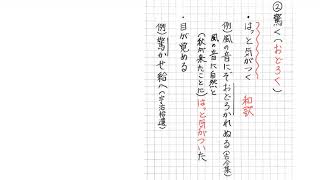 ②驚く(おどろく)
・はっと気がつく
和訳
例)風の音にぞおどろかれぬる(古今集)
風の音に自然と
(秋が来たことに)はっと気がついた
・目が覚める
例)驚かせ給へ(宇治拾遺)